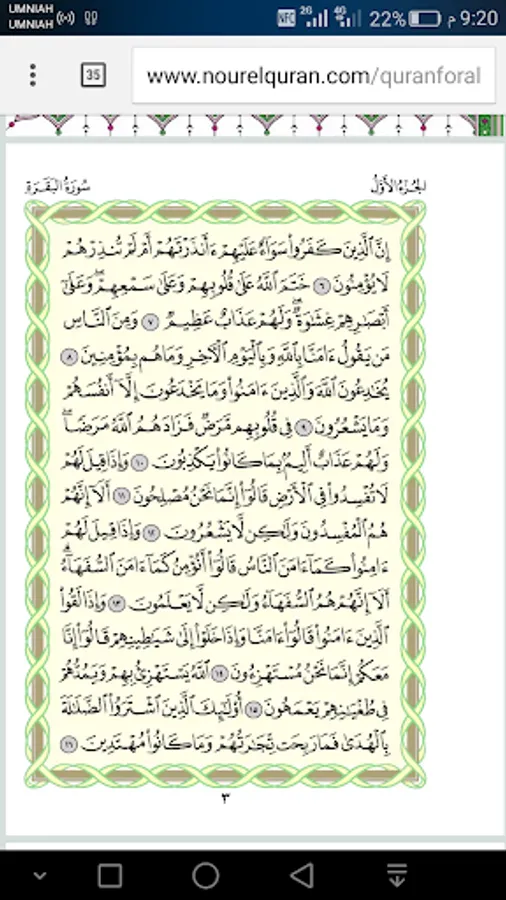 UMNIAH
UMNIAH
NFC 2G 4G 22% م 9:20
35
www.nourelquran.com/quranforal
الجزء الأوّل سورة البقرة
إِنَّ ٱلَّذِينَ كَفَرُوا۟ سَوَآءٌ عَلَيْهِمْ ءَأَنذَرْتَهُمْ أَمْ لَمْ تُنذِرْهُمْ
لَا يُؤْمِنُونَ ٦ خَتَمَ ٱللَّهُ عَلَىٰ قُلُوبِهِمْ وَعَلَىٰ سَمْعِهِمْ ۖ وَعَلَىٰٓ
أَبْصَـٰرِهِمْ غِشَـٰوَةٌ ۖ وَلَهُمْ عَذَابٌ عَظِيمٌ ٧ وَمِنَ ٱلنَّاسِ
مَن يَقُولُ ءَامَنَّا بِٱللَّهِ وَبِٱلْيَوْمِ ٱلْـَٔاخِرِ وَمَا هُم بِمُؤْمِنِينَ ٨
يُخَـٰدِعُونَ ٱللَّهَ وَٱلَّذِينَ ءَامَنُوا۟ وَمَا يَخْدَعُونَ إِلَّآ أَنفُسَهُمْ
وَمَا يَشْعُرُونَ ٩ فِى قُلُوبِهِم مَّرَضٌ فَزَادَهُمُ ٱللَّهُ مَرَضًا ۖ
وَلَهُمْ عَذَابٌ أَلِيمٌۢ بِمَا كَانُوا۟ يَكْذِبُونَ ١٠ وَإِذَا قِيلَ لَهُمْ
لَا تُفْسِدُوا۟ فِى ٱلْأَرْضِ قَالُوٓا۟ إِنَّمَا نَحْنُ مُصْلِحُونَ ١١ أَلَآ إِنَّهُمْ
هُمُ ٱلْمُفْسِدُونَ وَلَـٰكِن لَّا يَشْعُرُونَ ١٢ وَإِذَا قِيلَ لَهُمْ
ءَامِنُوا۟ كَمَآ ءَامَنَ ٱلنَّاسُ قَالُوٓا۟ أَنُؤْمِنُ كَمَآ ءَامَنَ ٱلسُّفَهَآءُ ۗ
أَلَآ إِنَّهُمْ هُمُ ٱلسُّفَهَآءُ وَلَـٰكِن لَّا يَعْلَمُونَ ١٣ وَإِذَا لَقُوا۟
ٱلَّذِينَ ءَامَنُوا۟ قَالُوٓا۟ ءَامَنَّا وَإِذَا خَلَوْا۟ إِلَىٰ شَيَـٰطِينِهِمْ قَالُوٓا۟ إِنَّا
مَعَكُمْ إِنَّمَا نَحْنُ مُسْتَهْزِءُونَ ١٤ ٱللَّهُ يَسْتَهْزِئُ بِهِمْ وَيَمُدُّهُمْ
فِى طُغْيَـٰنِهِمْ يَعْمَهُونَ ١٥ أُو۟لَـٰٓئِكَ ٱلَّذِينَ ٱشْتَرَوُا۟ ٱلضَّلَـٰلَةَ
بِٱلْهُدَىٰ فَمَا رَبِحَت تِّجَـٰرَتُهُمْ وَمَا كَانُوا۟ مُهْتَدِينَ ١٦
٣